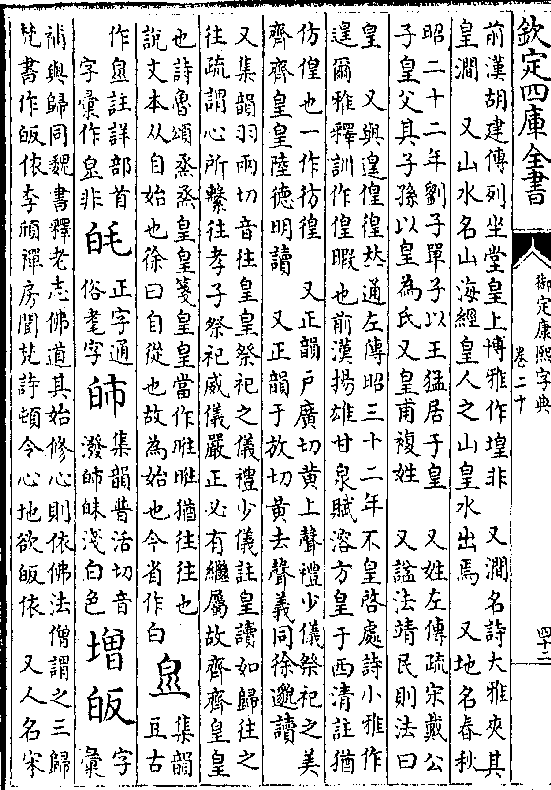 欽定四庫全書
御定康熙字典
卷二十
四十二
前漢胡建傳列坐堂皇上博雅作堭非　又澗名詩大雅夾其
皇澗　又山水名山海經皇人之山皇水出焉　又地名春秋
昭二十二年劉子單子以王猛居于皇　又姓左傳疏宋戴公
子皇父其子孫以皇為氏又皇甫複姓　又諡法靖民則法曰
皇　又與遑偟徨𠀤通左傳昭三十二年不皇啓處詩小雅作
遑爾雅釋訓作偟暇也前漢揚雄甘泉賦溶方皇于西清註猶
仿偟也一作彷徨　又正韻戶廣切黄上聲禮少儀祭祀之美
齊齊皇皇陸德明讀　又正韻于放切黄去聲義同徐邈讀
又集韻羽兩切音往皇皇祭祀之儀禮少儀註皇讀如歸往之
往疏謂心所繫往孝子祭祀威儀嚴正必有繼屬故齊齊皇皇
也詩魯頌烝烝皇皇箋皇皇當作暀暀猶往往也
說文本从自始也徐曰自從也故為始也今省作白
集韻
豆古
作　註詳部首
字彙作　非
正字通
俗耄字
集韻普活切音
潑　　淺白色
增皈
字
彙
補與歸同魏書釋老志佛道其始修心則依佛法僧謂之三歸
梵書作皈依李頎禪房聞梵詩頓令心地欲皈依　又人名宋